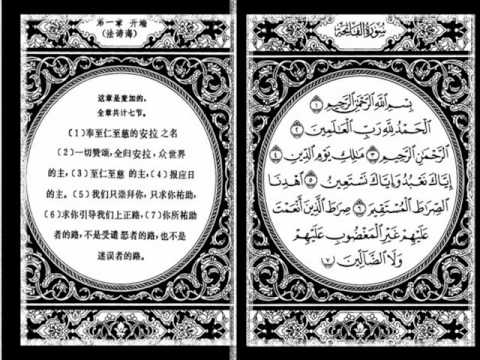 第一章 开端
(法谛海)
这章是麦加的。
全章共计七节。
(1)奉至仁至慈的安拉之名
(2)一切赞颂,全归安拉,众世界
的主,(3)至仁至慈的主,(4)报应日
的主。(5)我们只崇拜你,只求你祐助,
(6)求你引导我们上正路,(7)你所祐助
者的路,不是受谴怒者的路,也不是
迷误者的路。
سُورَةُ الفَاتِحَةِ
بِسْمِ اللَّهِ الرَّحْمَٰنِ الرَّحِيمِ ١
الْحَمْدُ لِلَّهِ رَبِّ الْعَالَمِينَ ٢
الرَّحْمَٰنِ الرَّحِيمِ ٣ مَٰلِكِ يَوْمِ الدِّينِ ٤
إِيَّاكَ نَعْبُدُ وَإِيَّاكَ نَسْتَعِينُ ٥ اهْدِنَا
الصِّرَاطَ الْمُسْتَقِيمَ ٦ صِرَاطَ الَّذِينَ أَنْعَمْتَ
عَلَيْهِمْ غَيْرِ الْمَغْضُوبِ عَلَيْهِمْ
وَلَا الضَّالِّينَ ٧